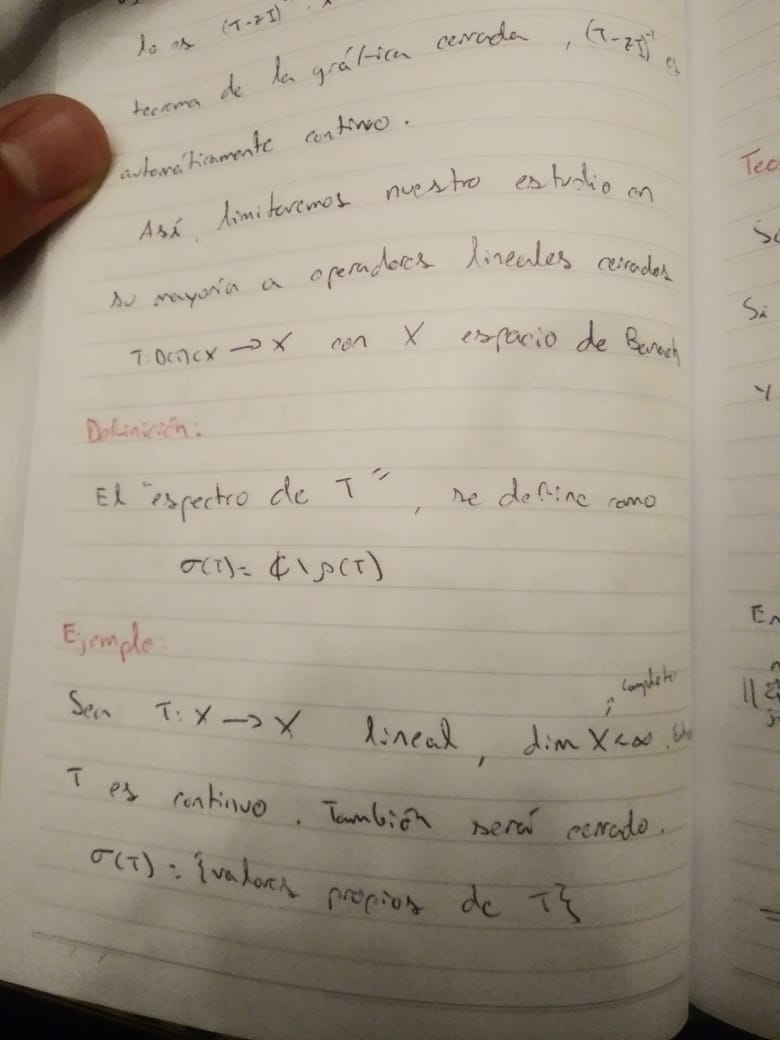 lo es (T-zI)⁻¹.
teorema de la gráfica cerrada, (T-zI)⁻¹ es
automáticamente continuo.
Así, limitaremos nuestro estudio en
su mayoría a operadores lineales cerrados
T:D(T)⊂X → X con X espacio de Banach
Definición:
El "espectro de T", se define como
σ(T)= ℂ\ρ(T)
Ejemplo:
completo
Sea T: X → X lineal, dim X<∞.
T es continuo. También será cerrado.
σ(T) = {valores propios de T}
Teo
Si
Y